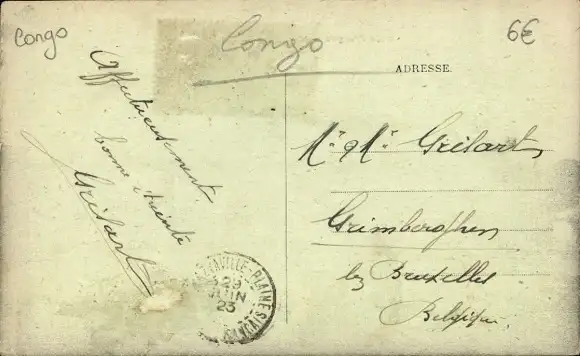 Congo
Congo
6€
ADRESSE.
Affectueusement
bonne étreinte
Grélart
Mr & Me Grélart
Grimberghen
lez Bruxelles
Belgique
VILLE-PLAINE
29
JUIN
23